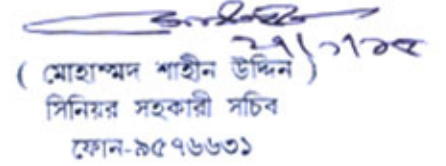 ( মোহাম্মদ শাহীন উদ্দিন )
সিনিয়র সহকারী সচিব
ফোন-৯৫৭৬৬৩১